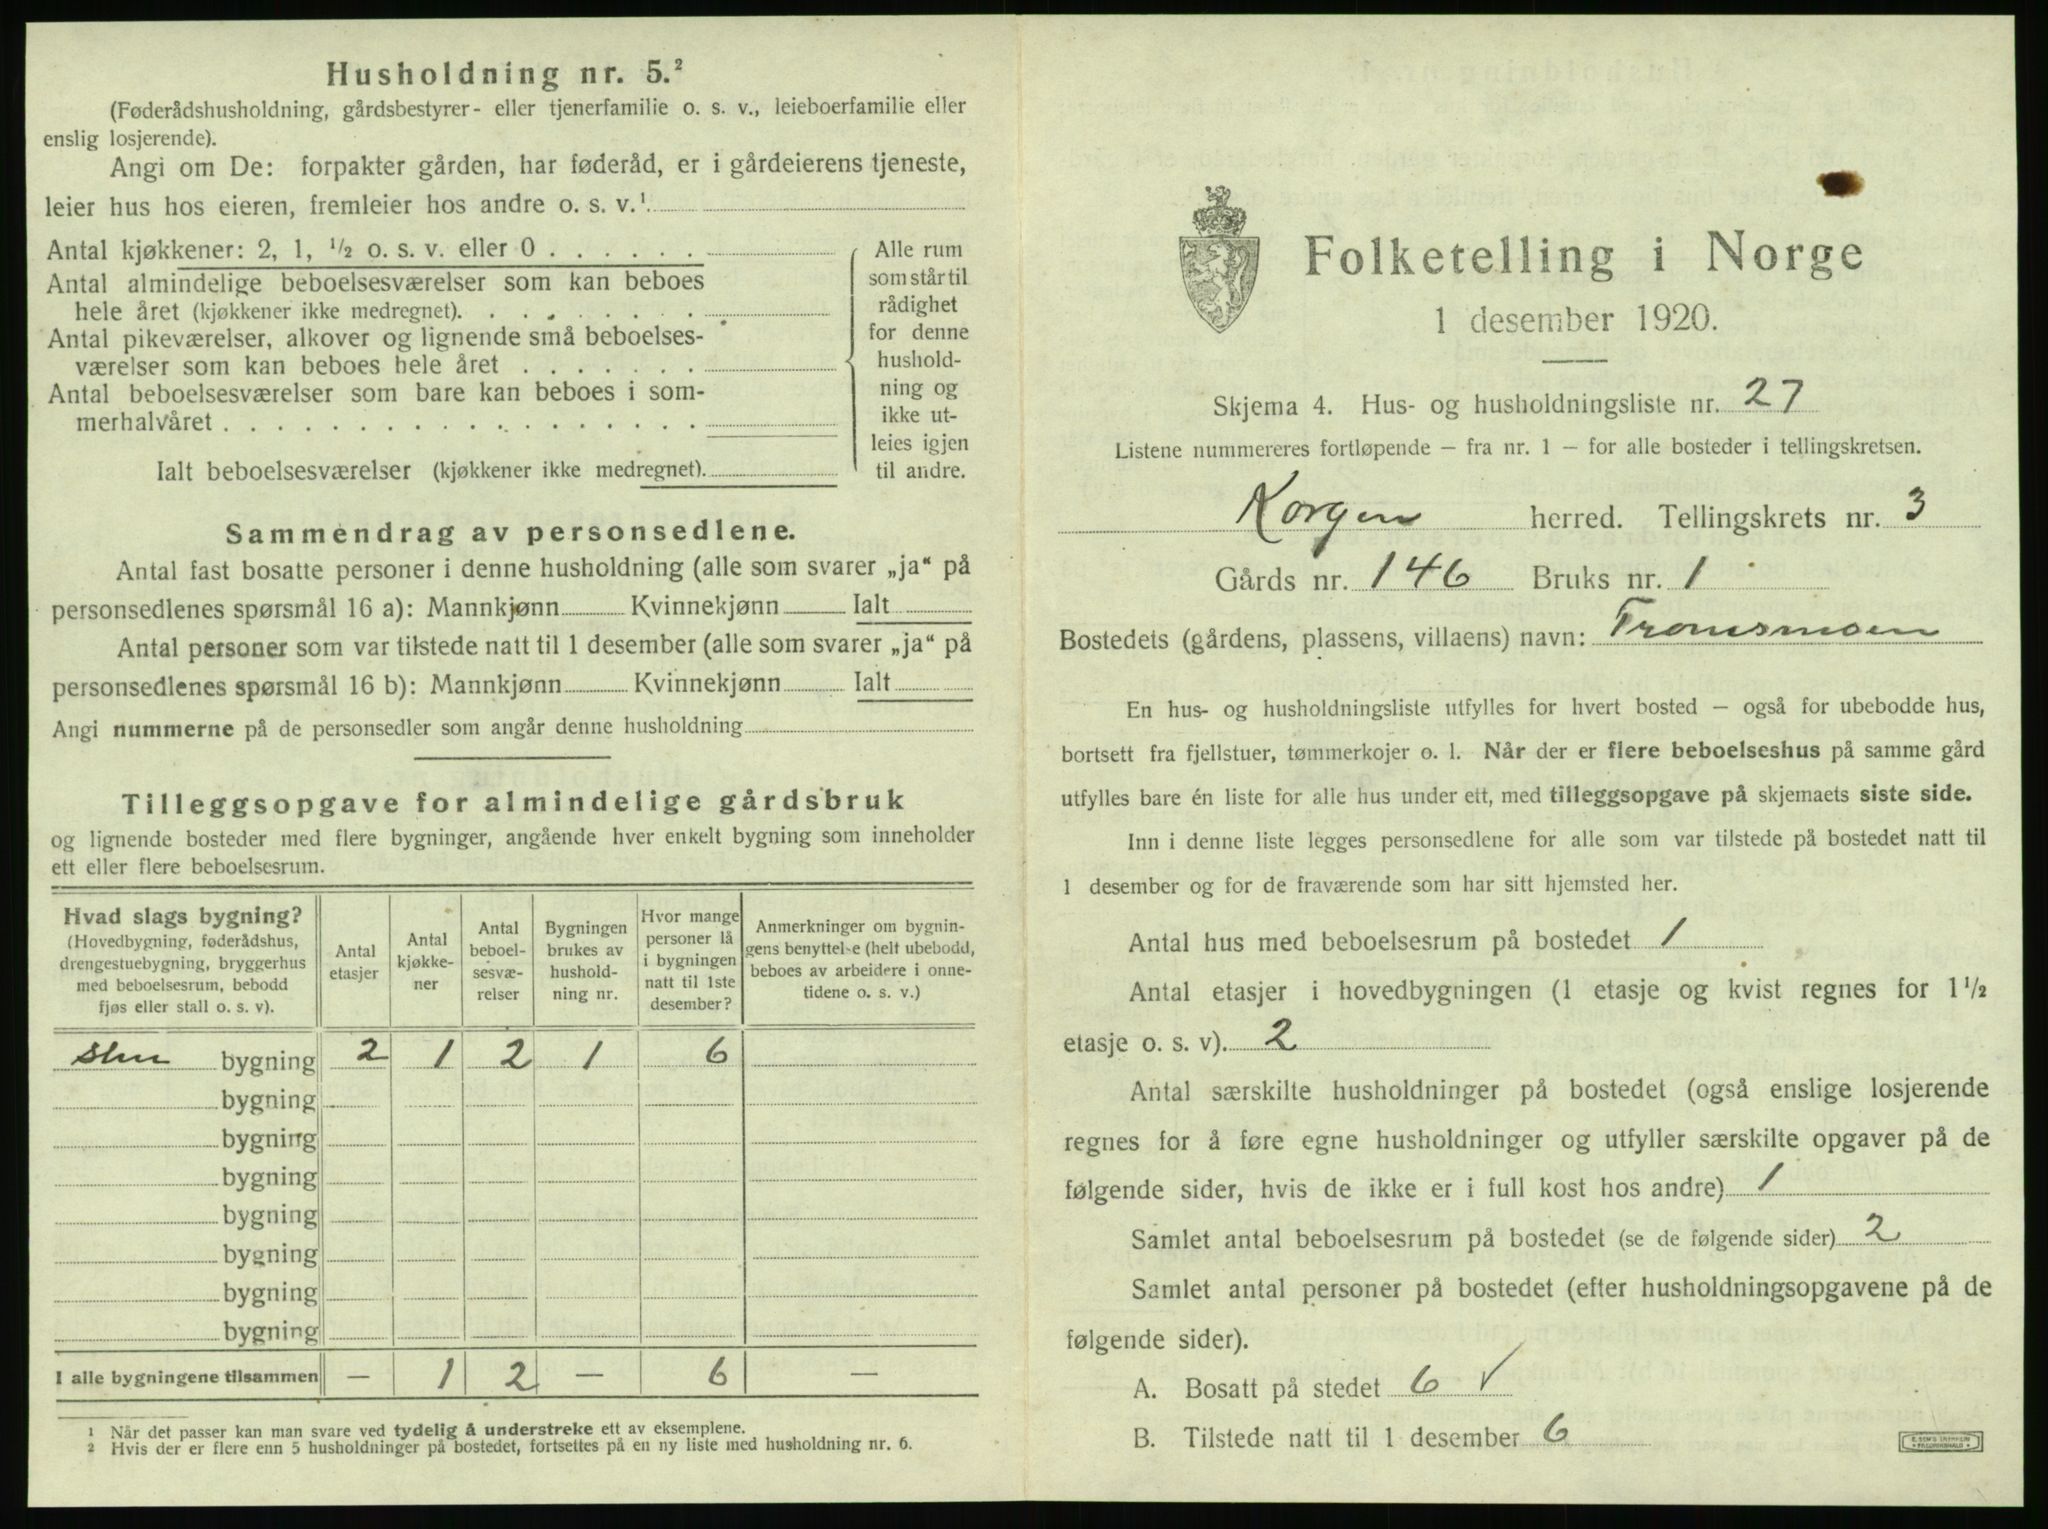 Husholdning nr. 5.²
(Føderådshusholdning, gårdsbestyrer- eller tjenerfamilie o. s. v., leieboerfamilie eller
enslig losjerende).
Angi om De: forpakter gården, har føderåd, er i gårdeierens tjeneste,
leier hus hos eieren, fremleier hos andre o. s. v.¹
Antal kjøkkener: 2, 1, ½ o. s. v. eller 0
Antal almindelige beboelsesværelser som kan beboes
hele året (kjøkkener ikke medregnet).
Antal pikeværelser, alkover og lignende små beboelses-
værelser som kan beboes hele året
Antal beboelsesværelser som bare kan beboes i som-
merhalvåret
Ialt beboelsesværelser (kjøkkener ikke medregnet).
Alle rum
som står til
rådighet
for denne
hushold-
ning og
ikke ut-
leies igjen
til andre.
Sammendrag av personsedlene.
Antal fast bosatte personer i denne husholdning (alle som svarer „ja“ på
personsedlenes spørsmål 16 a): Mannkjønn Kvinnekjønn Ialt
Antal personer som var tilstede natt til 1 desember (alle som svarer „ja“ på
personsedlenes spørsmål 16 b): Mannkjønn Kvinnekjønn Ialt
Angi nummerne på de personsedler som angår denne husholdning
Tilleggsopgave for almindelige gårdsbruk
og lignende bosteder med flere bygninger, angående hver enkelt bygning som inneholder
ett eller flere beboelsesrum.
Hvad slags bygning?
(Hovedbygning, føderådshus,
drengestuebygning, bryggerhus
med beboelsesrum, bebodd
fjøs eller stall o. s. v).
Antal
etasjer
Antal
kjøkke-
ner
Antal
beboel-
sesvæ-
relser
Bygningen
brukes av
hushold-
ning nr.
Hvor mange
personer lå
i bygningen
natt til 1ste
desember?
Anmerkninger om bygnin-
gens benyttelse (helt ubebodd,
beboes av arbeidere i onne-
tidene o. s. v.)
bygning 2 1 2 1 6
bygning
bygning
bygning
bygning
bygning
bygning
bygning
I alle bygningene tilsammen — 1 2 — 6 —
¹ Når det passer kan man svare ved tydelig å understreke ett av eksemplene.
² Hvis der er flere enn 5 husholdninger på bostedet, fortsettes på en ny liste med husholdning nr. 6.
Folketelling i Norge
1 desember 1920.
Skjema 4. Hus- og husholdningsliste nr. 27
Listene nummereres fortløpende — fra nr. 1 — for alle bosteder i tellingskretsen.
Korgen herred. Tellingskrets nr. 3
Gårds nr. 146 Bruks nr. 1
Bostedets (gårdens, plassens, villaens) navn: Tromsmoen
En hus- og husholdningsliste utfylles for hvert bosted — også for ubebodde hus,
bortsett fra fjellstuer, tømmerkojer o. l. Når der er flere beboelseshus på samme gård
utfylles bare én liste for alle hus under ett, med tilleggsopgave på skjemaets siste side.
Inn i denne liste legges personsedlene for alle som var tilstede på bostedet natt til
1 desember og for de fraværende som har sitt hjemsted her.
Antal hus med beboelsesrum på bostedet 1
Antal etasjer i hovedbygningen (1 etasje og kvist regnes for 1½
etasje o. s. v). 2
Antal særskilte husholdninger på bostedet (også enslige losjerende
regnes for å føre egne husholdninger og utfyller særskilte opgaver på de
følgende sider, hvis de ikke er i full kost hos andre) 1
Samlet antal beboelsesrum på bostedet (se de følgende sider) 2
Samlet antal personer på bostedet (efter husholdningsopgavene på de
følgende sider).
A. Bosatt på stedet 6 √
B. Tilstede natt til 1 desember 6